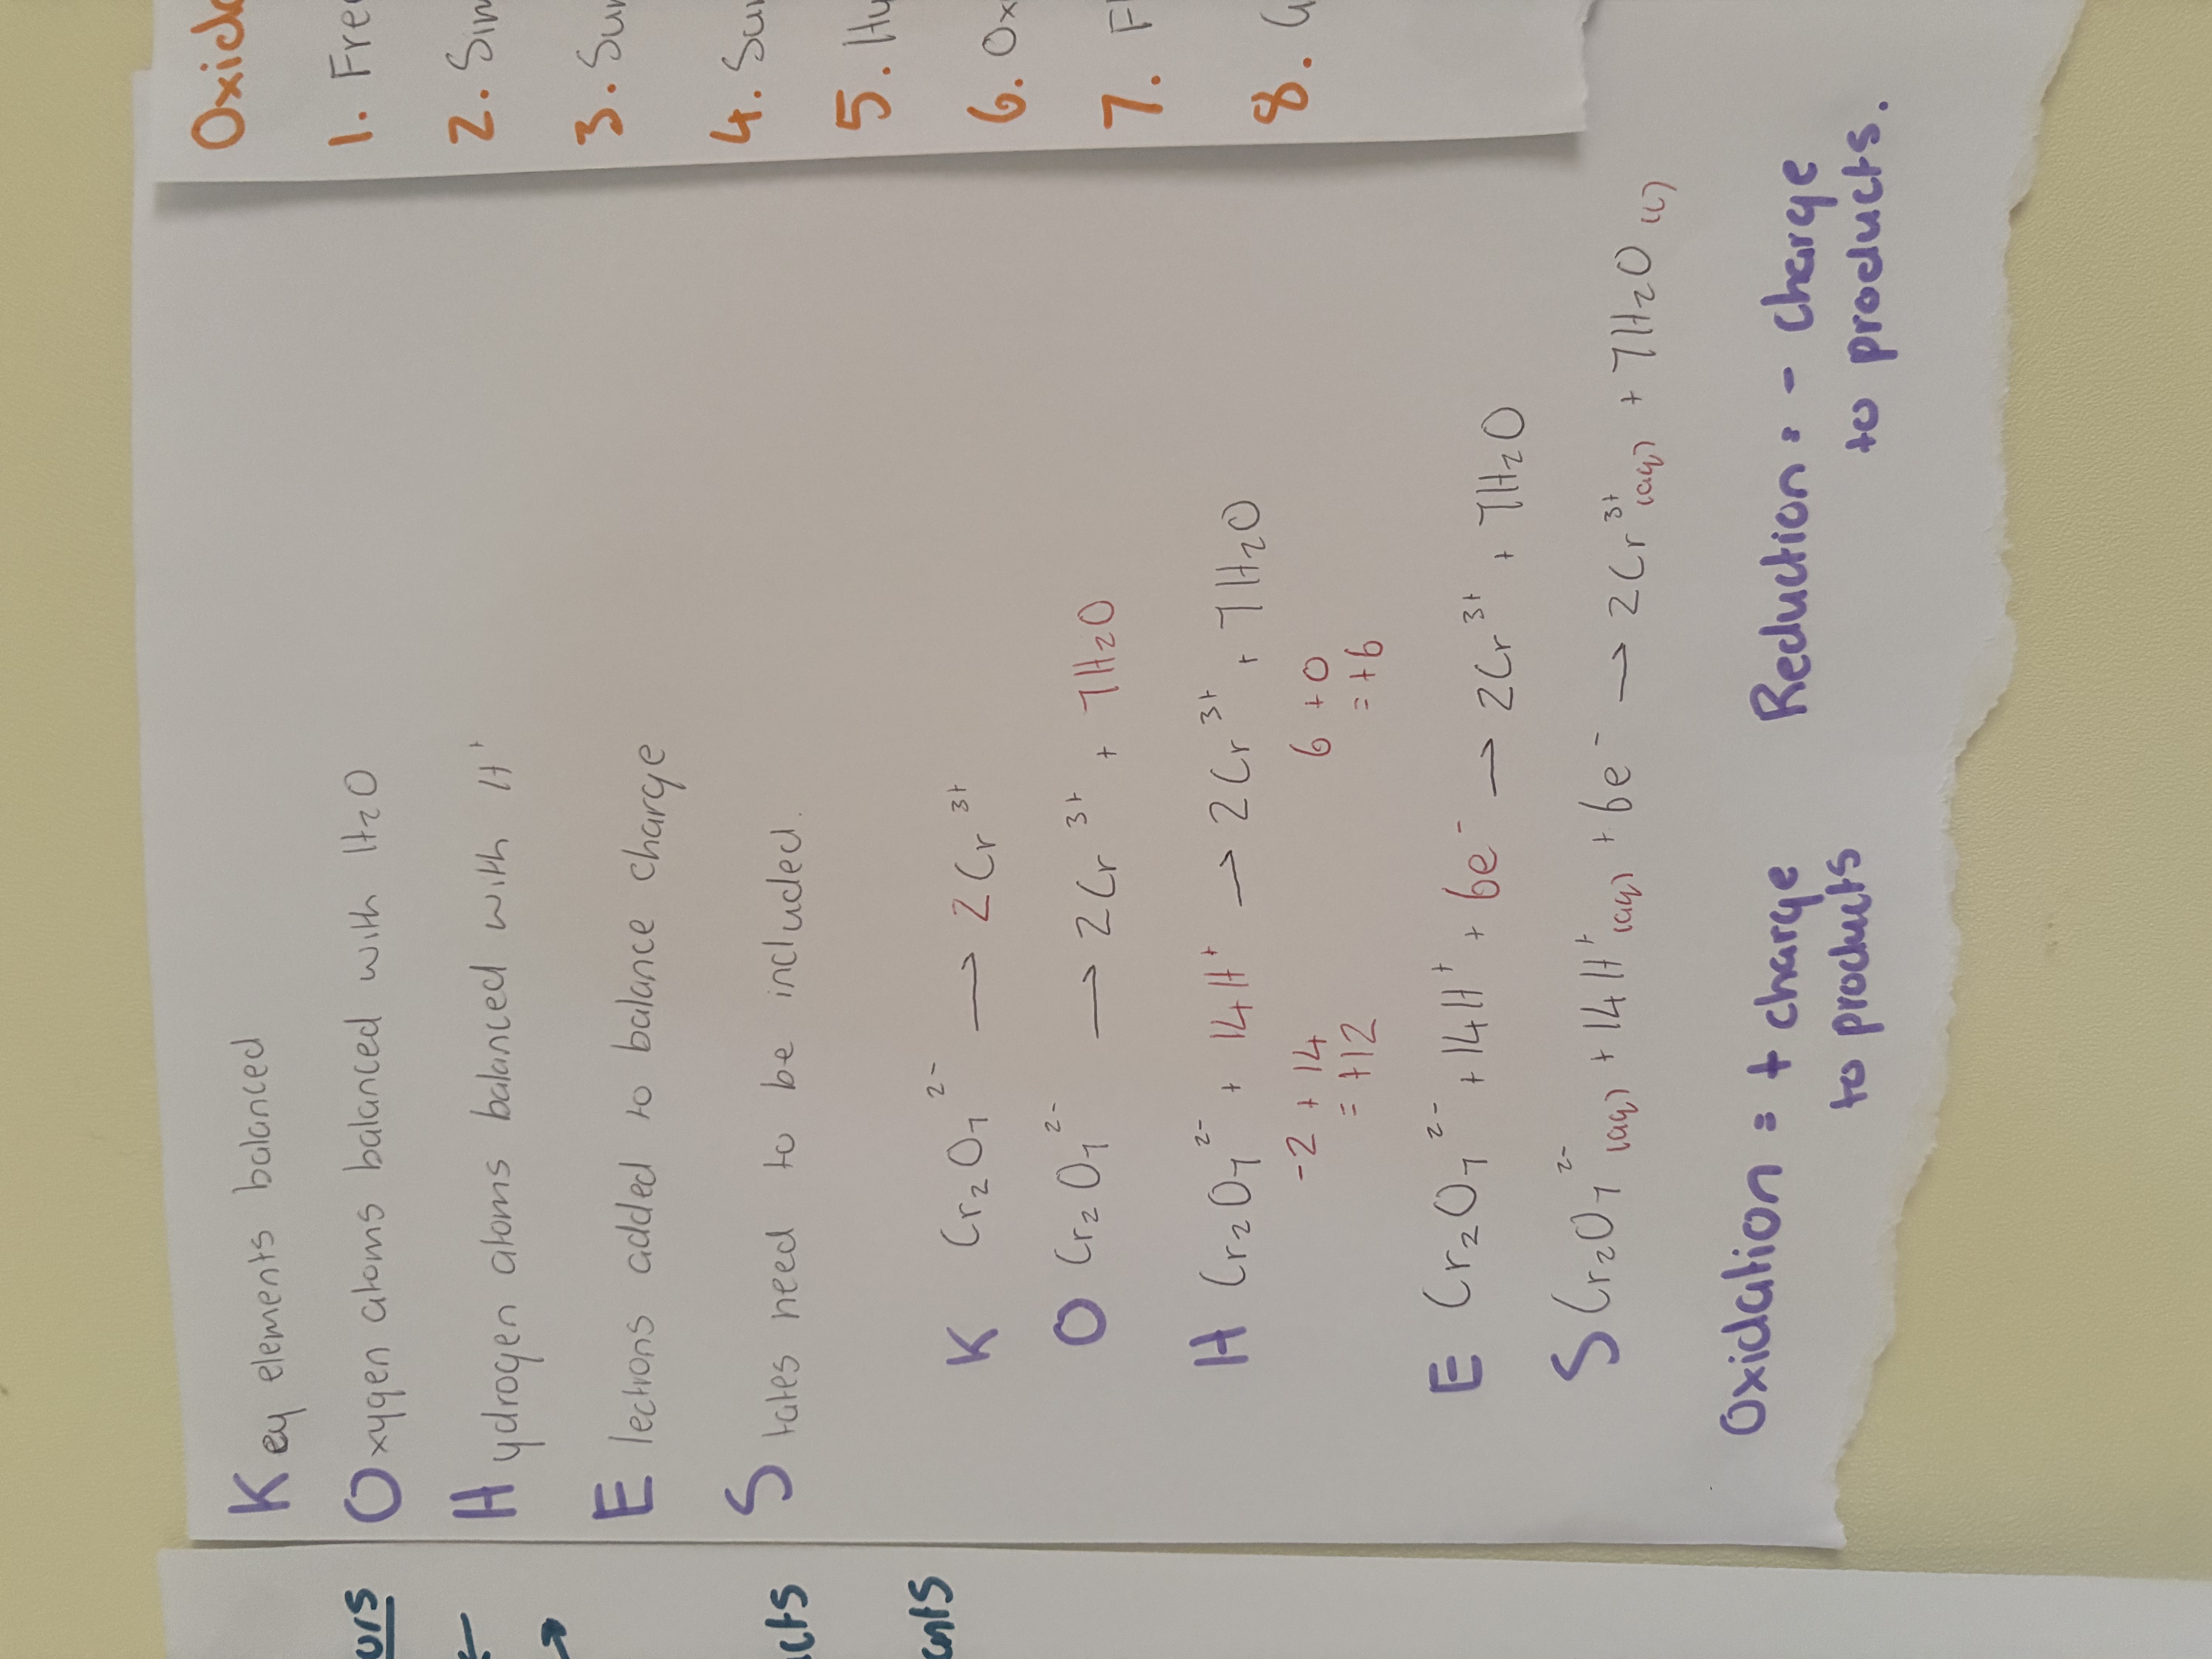 Key elements balanced
Oxygen atoms balanced with H₂O
Hydrogen atoms balanced with H⁺
Electrons added to balance charge
States need to be included.
K Cr₂O₇²⁻ → 2Cr³⁺
O Cr₂O₇²⁻ → 2Cr³⁺ + 7H₂O
H Cr₂O₇²⁻ + 14H⁺ → 2Cr³⁺ + 7H₂O
-2 + 14 6 + 0
= +12 = +6
E Cr₂O₇²⁻ + 14H⁺ + 6e⁻ → 2Cr³⁺ + 7H₂O
S Cr₂O₇²⁻(aq) + 14H⁺(aq) + 6e⁻ → 2Cr³⁺(aq) + 7H₂O(l)
Oxidation = + charge
to products
Reduction = - charge
to products.
1. Fre
2. Sim
3. Sum
4. Sum
5. Hy
6. Ox
7. Fl
8.